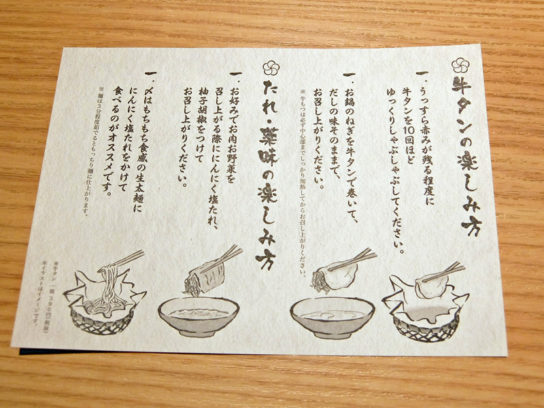 牛タンの楽しみ方
一.うっすら赤みが残る程度に
牛タンを10回ほど
ゆっくりしゃぶしゃぶしてください。
一.お鍋のねぎを牛タンで巻いて、
だしの味そのままで、
お召し上がりください。
※牛もつは必ず中心部までしっかり加熱してからお召し上がりください。
たれ・薬味の楽しみ方
一.お好みでお肉お野菜を
召し上がる際ににんにく塩たれ、
柚子胡椒をつけて
お召し上がりください。
一.〆はもちもち食感の生太麺に
にんにく塩たれをかけて
食べるのがオススメです。
※麺は3分程度茹でるともっちり麺に仕上がります。
※イラストはイメージです。